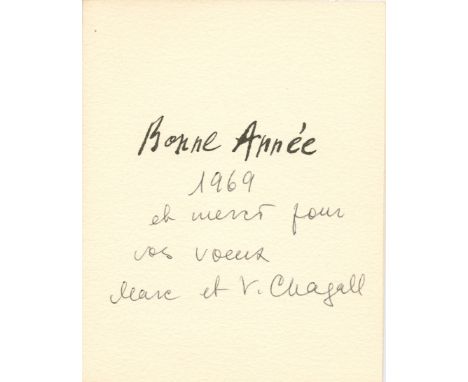 Bonne Année
1969
et merci pour
vos voeux
Marc et V. Chagall